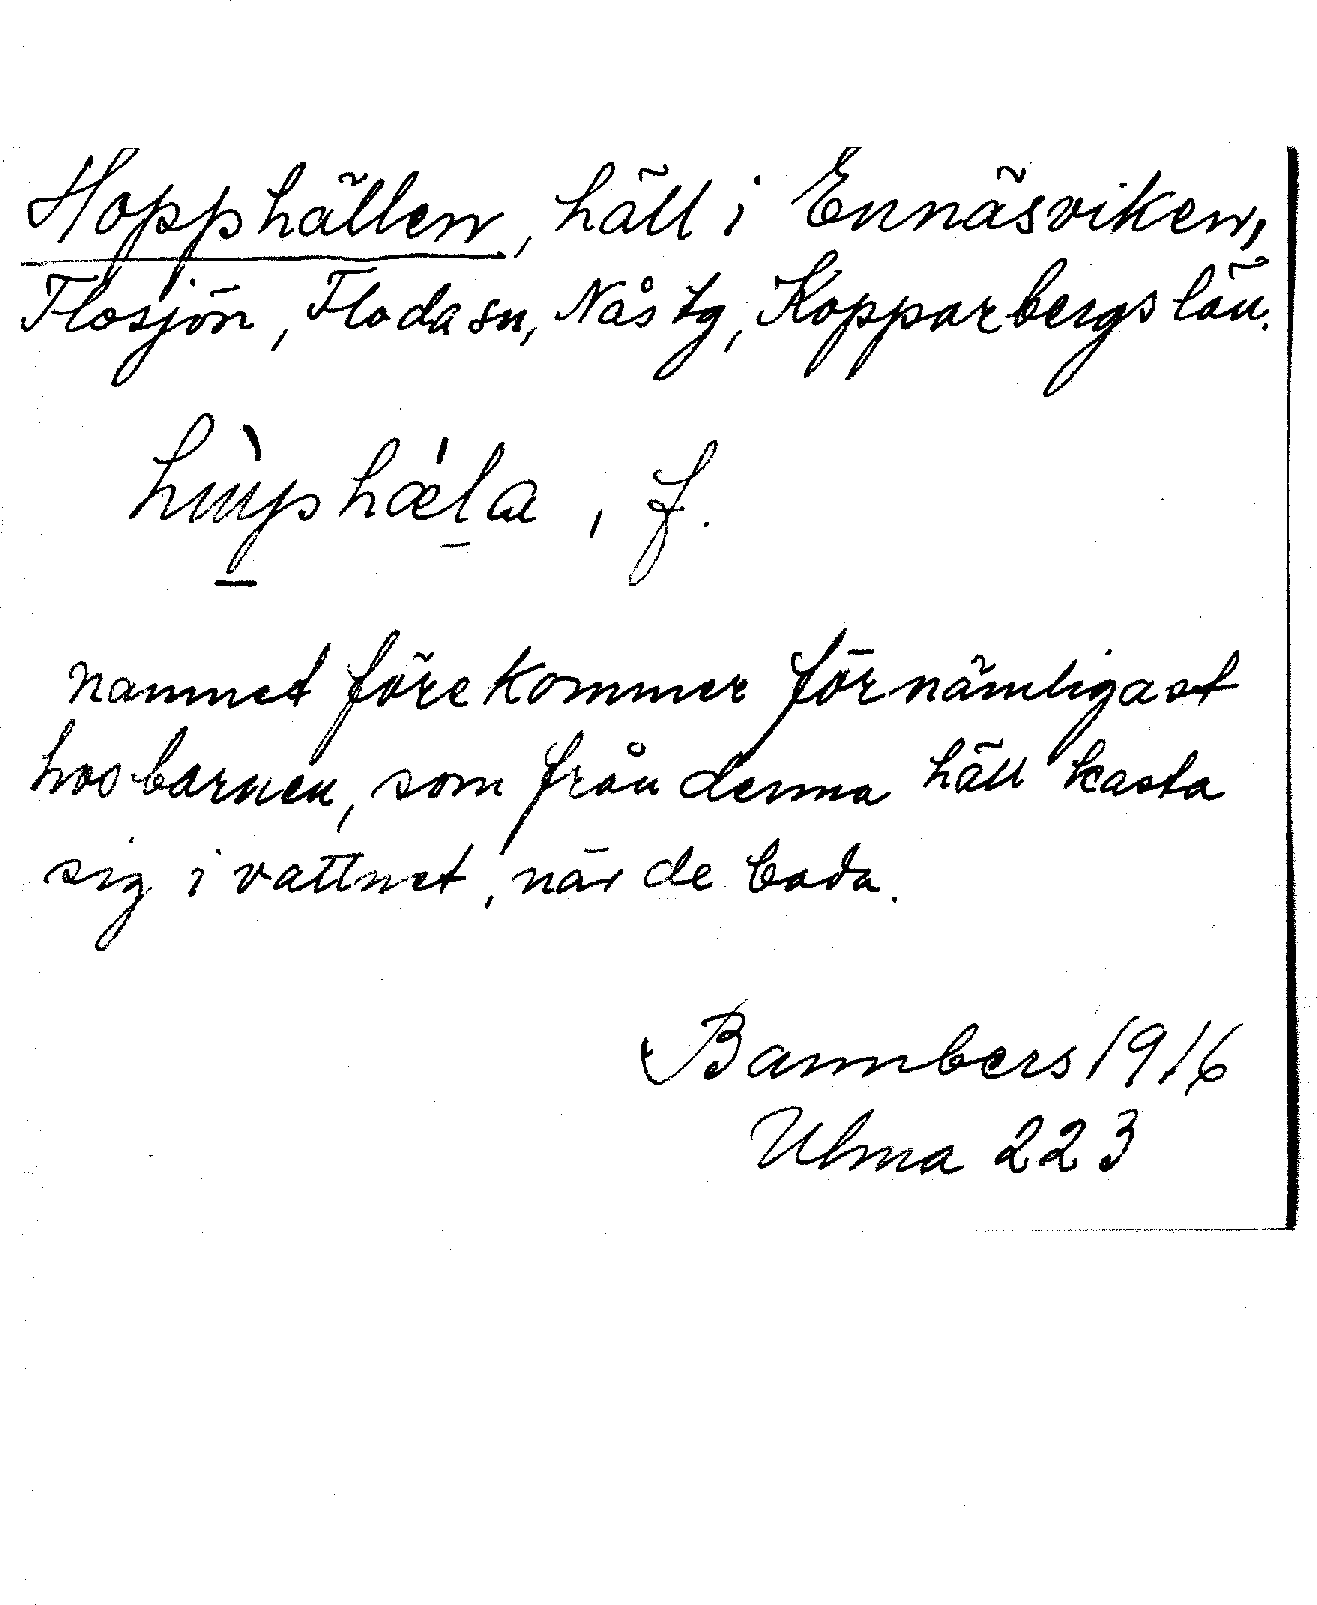 Hopphällen, häll i Ennäsviken,
Flosjön, Floda sn, Nås tg, Kopparbergs län.
, f.
namnet förekommer förnämligast
hos barnen, som från denna häll kasta
sig i vattnet, när de bada.
Bannbers 1916
Ulma 223